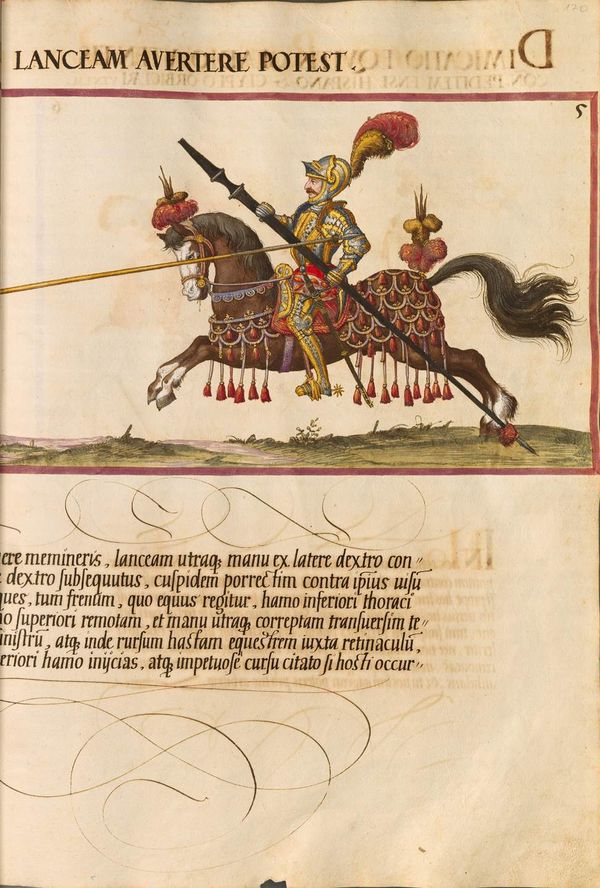 170
LANCEAM AVERTERE POTEST.
5
ere memineris, lanceam utraq; manu ex latere dextro con=
dextro subsequutus, cuspidem porrectim contra ipius uisū
ques, tum frenum, quo equus regitur, hamo inferiori thoraci
o superiori remotam, et manu utraq; correptam transuersim te=
inistrū, atq; inde rursum hastam equestrem iuxta retinaculū,
eriori hamo inijcias, atq; impetuose cursu citato si hosti occur=